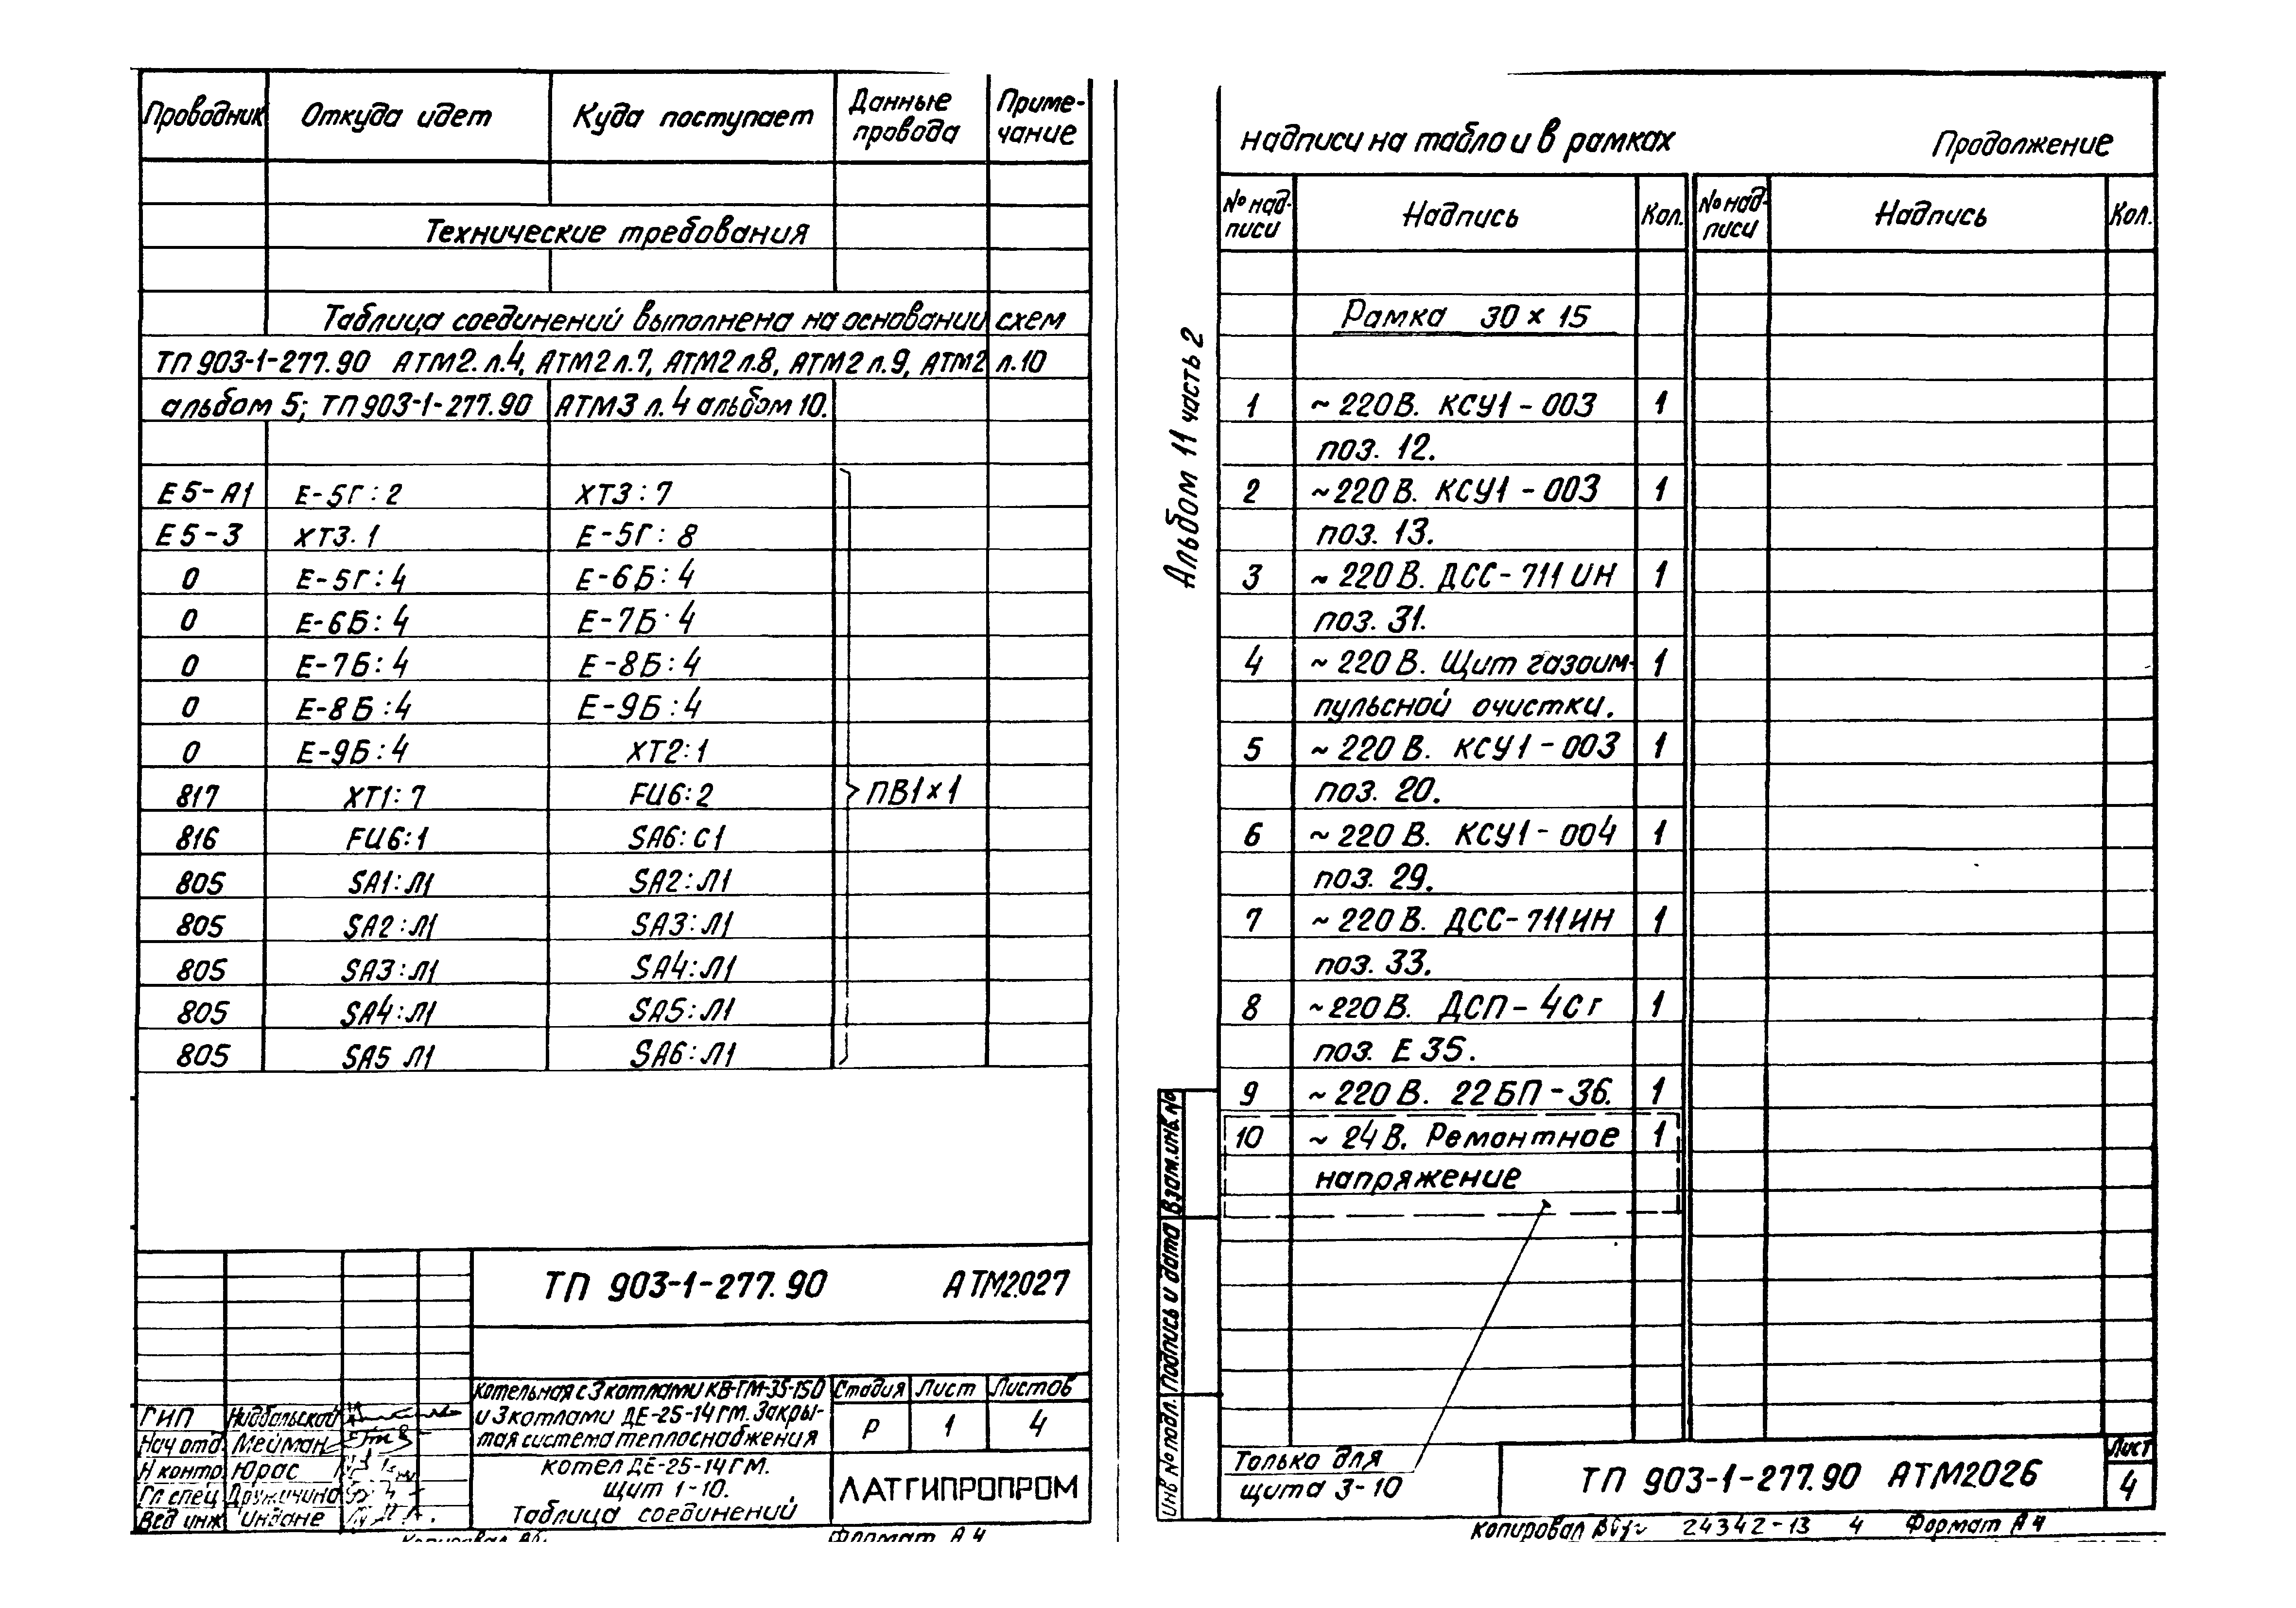 Проводник Откуда идет Куда поступает Данные провода Приме- чание
Технические требования
Таблица соединений выполнена на основании схем
ТП 903-1-277.90 АТМ2. л.4, АТМ2 л.7, АТМ2 л.8, АТМ2 л.9, АТМ2 л.10
альбом 5; ТП 903-1-277.90 АТМ3 л.4 альбом 10.
Е5-А1 Е-5Г:2 ХТ3:7
Е5-3 ХТ3.1 Е-5Г:8
0 Е-5Г:4 Е-6Б:4
0 Е-6Б:4 Е-7Б·4
0 Е-7Б:4 Е-8Б:4
0 Е-8Б:4 Е-9Б:4
0 Е-9Б:4 ХТ2:1
817 ХТ1:7 FU6:2 ПВ1х1
816 FU6:1 SA6:С1
805 SA1:Л1 SA2:Л1
805 SA2:Л1 SA3:Л1
805 SA3:Л1 SA4:Л1
805 SA4:Л1 SA5:Л1
805 SA5 Л1 SA6:Л1
ТП 903-1-277.90 АТМ2.027
Котельная с 3 котлами КВ-ГМ-35-150
и 3 котлами ДЕ-25-14ГМ. Закры-
тая система теплоснабжения
Стадия Лист Листов
Р 1 4
ГИП
Нач отд Мейман
Н контр Юрас
Гл спец Дружинина
Вед инж
котел ДЕ-25-14ГМ.
щит 1-10.
Таблица соединений
ЛАТГИПРОПРОМ
Копировал
Формат А4
Альбом 11 часть 2
надписи на табло и в рамках Продолжение
№ над- писи Надпись Кол. № над- писи Надпись Кол.
Рамка 30 х 15
1 ~ 220В. КСУ1-003 1
поз. 12.
2 ~220В. КСУ1-003 1
поз. 13.
3 ~ 220В. ДСС-711ИН 1
поз. 31.
4 ~ 220В. Щит газоим- 1
пульсной очистки.
5 ~ 220В. КСУ1-003 1
поз. 20.
6 ~ 220В. КСУ1-004 1
поз. 29.
7 ~ 220В. ДСС-711ИН 1
поз. 33.
8 ~220В. ДСП-4Сг 1
поз. Е35.
9 ~ 220В. 22БП-36. 1
10 ~ 24В. Ремонтное 1
напряжение
Только для
щита 3-10
ТП 903-1-277.90 АТМ2.026
Лист
4
Взам.инв №
Подпись и дата
Инв № подл.
Копировал 24342-13 4 Формат А4